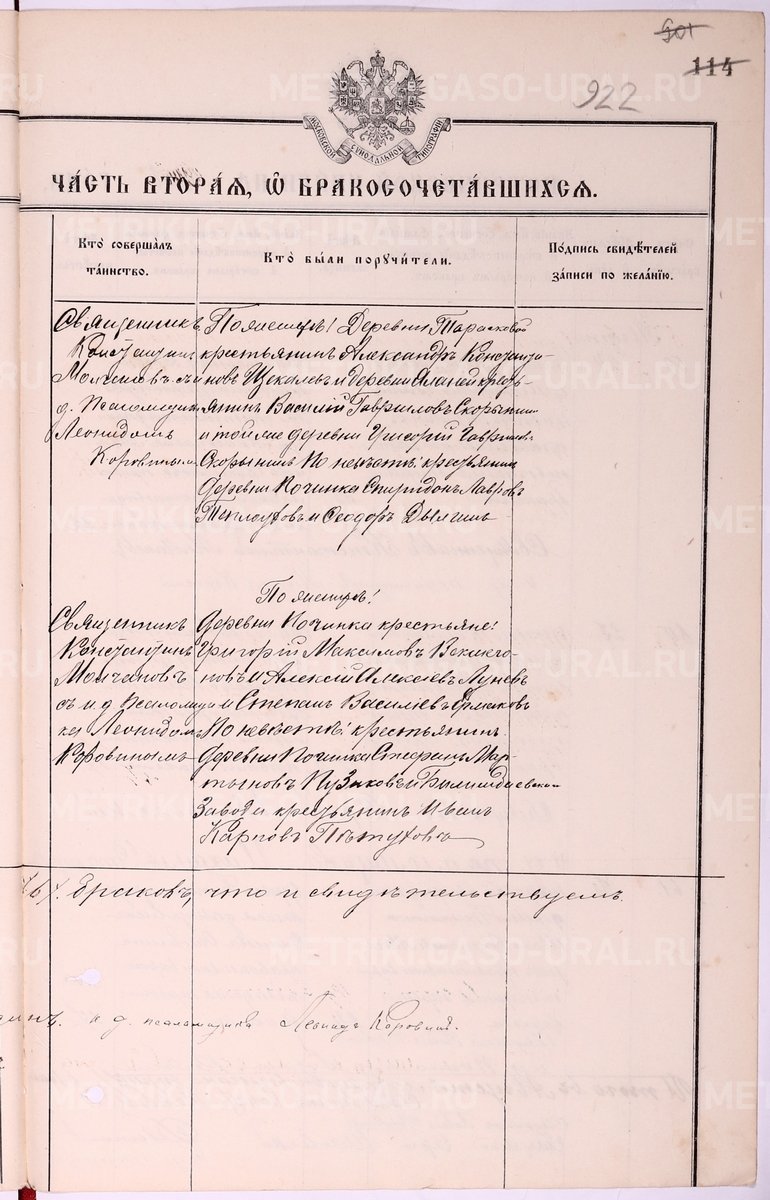 114
922
МОСКОВСКОЙ СѴНОДАЛЬНОЙ ТИПОГРАФІИ
ЧА́СТЬ ВТОРА́Я, Ѡ БРАКОСОЧЕТА́ВШИХСЯ.
Кто̀ соверша́лъ
та́инство.
Кто̀ бы́ли поручи́тели.
По́дпись свидѣ́телей
за́писи по жела́нію.
Священникъ
Константинъ
Молчановъ съ и
д. Псаломщика
Леонидомъ
Коровинымъ
По женихѣ! Деревни Тарасковой
крестьянинъ Александръ Константи-
новъ Щекалевъ и деревни кресть-
янинъ Василій Гавриловъ Скорынинъ
и той же деревни Григорій Гавриловъ
Скорынинъ По невѣстѣ: крестьянинъ
деревни Починка Спиридонъ Лавровъ
Теплоуховъ и Ѳеодоръ
Священникъ
Константинъ
Молчановъ
съ и. д. Псаломщи
ка Леонидомъ
Коровинымъ
По женихѣ!
Деревни Починка крестьяне!
Григорій Максимовъ
новъ и Алексій Алексіевъ Луневъ
и Степанъ Василіевъ Ермаковъ
По невѣстѣ! крестьянинъ
деревни Починка Стефанъ Мар-
тыновъ Пузиковъ и Билимбаевскаго
Завода крестьянинъ Иванъ
Карповъ Пѣтуховъ
браковъ, что и свидѣтельствуемъ.
и. д. псаломщика Леонидъ Коровинъ.
METRIKI.GASO-URAL.RU